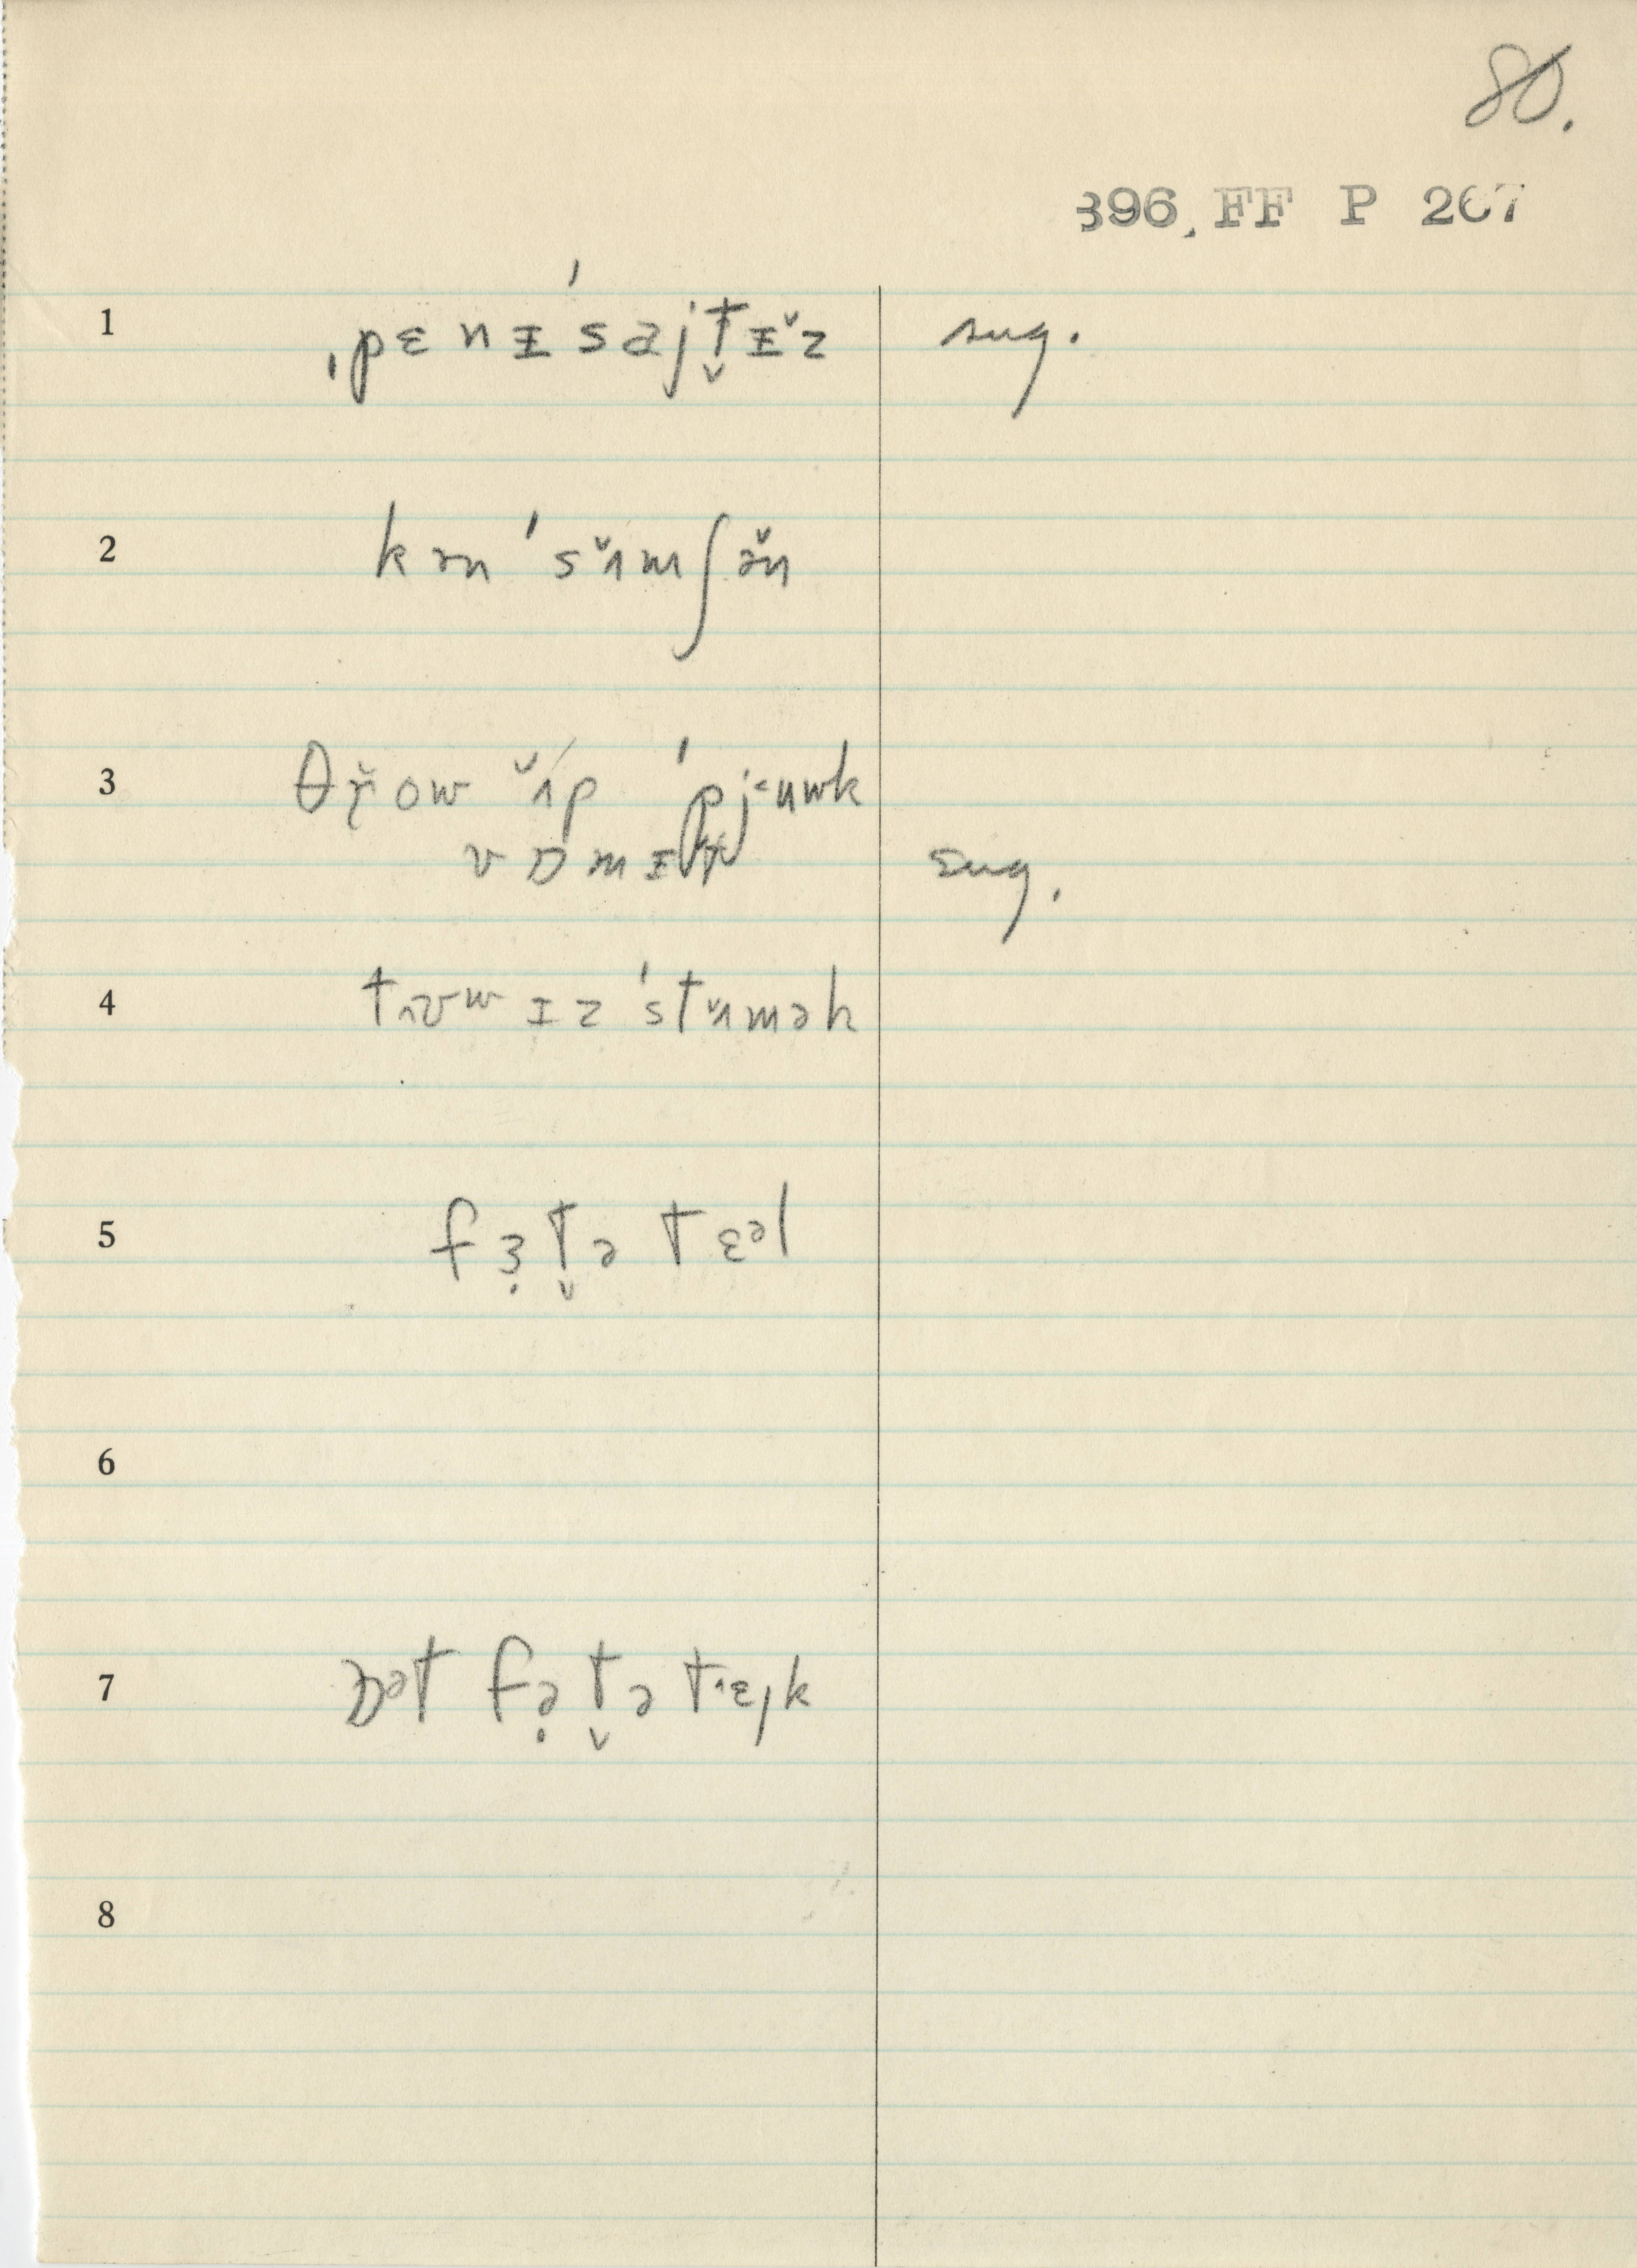 80.
396, FF P 267
1 ˌpɛnɪˈsajt̬ɪ̆z sug.
2 kənˈsʌ̆mʃə̆n
3 θr̆ow ʌ̆p ˈpjᵋuwk
vɒmɪt sug.
4 tʌvwɪz ˈstʌ̆mək
5 fɜ̣t̬ə tɛᵊl
6
7 ɒᵊt fə̣t̬ə tᶺɛjk
8